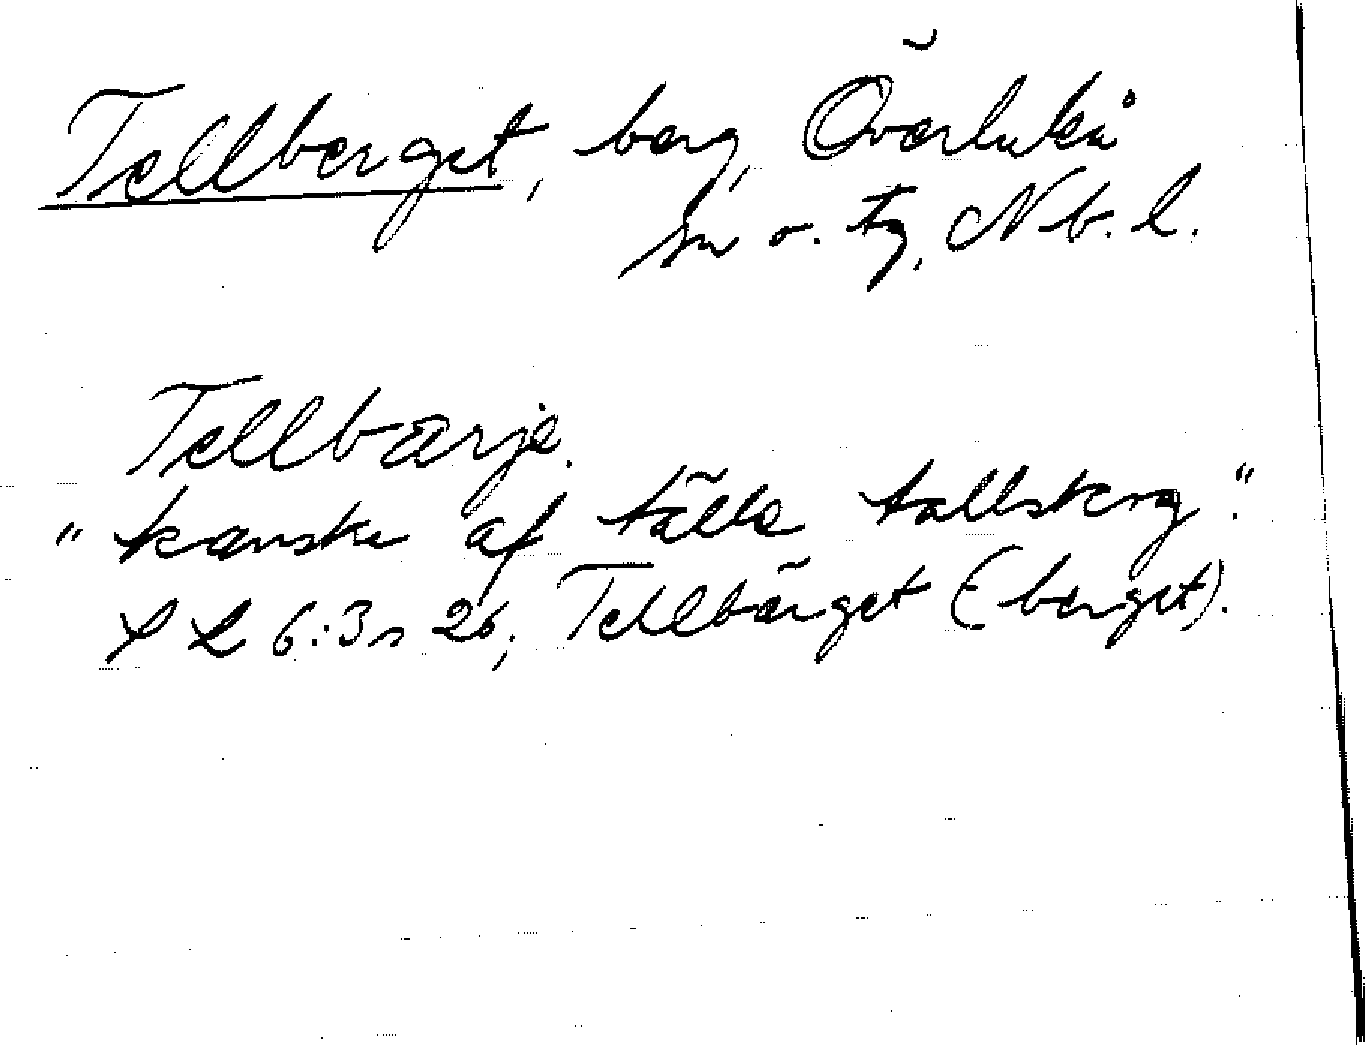 Tellberget, berg, Överluleå
sn o. tg, Nb. l.
Tellbærje.
"kanske af tälle tallskog".
L L 6:3 s 26; Tellbärget (berget).